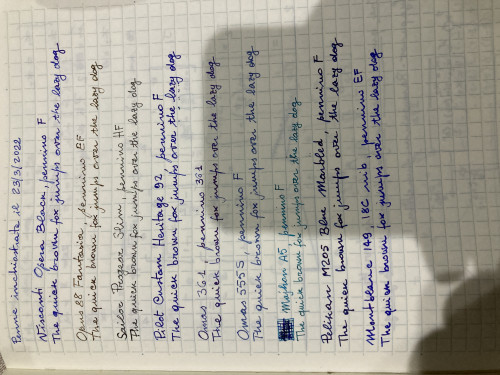 Penne inchiostrate il 23/3/2022
Visconti Opera Black, pennino F
The quick brown fox jumps over the lazy dog
Opus 88 Fantasia, pennino EF
The quick brown fox jumps over the lazy dog
Sailor Progear Slim, pennino MF
The quick brown fox jumps over the lazy dog
Pilot Custom Heritage 92, pennino F
The quick brown fox jumps over the lazy dog
Omas 361, pennino 361
The quick brown fox jumps over the lazy dog
Omas 555S, pennino F
The quick brown fox jumps over the lazy dog
Majhon A5 pennino F
The quick brown fox jumps over the lazy dog
Pelikan M205 Blue Marbled, pennino F
The quick brown fox jumps over the lazy dog
Montblanc 149, 18C nib, pennino EF
The quick brown fox jumps over the lazy dog